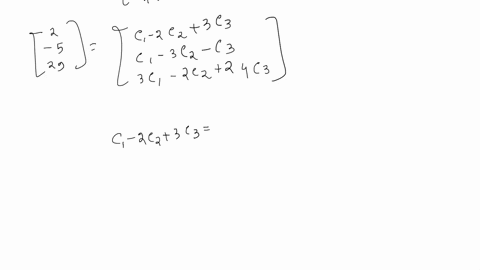 [2 -5 29] = [C₁-2C₂+3C₃
C₁-3C₂-C₃
3C₁-2C₂+24C₃]
C₁-2C₂+3C₃=